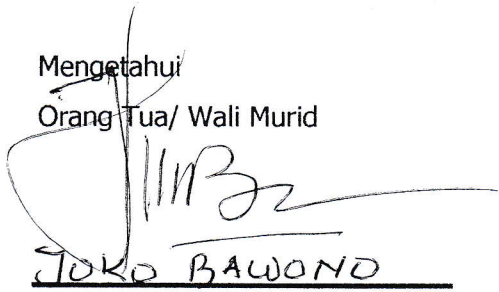 Mengetahui
Orang Tua/ Wali Murid
JOKO BAWONO